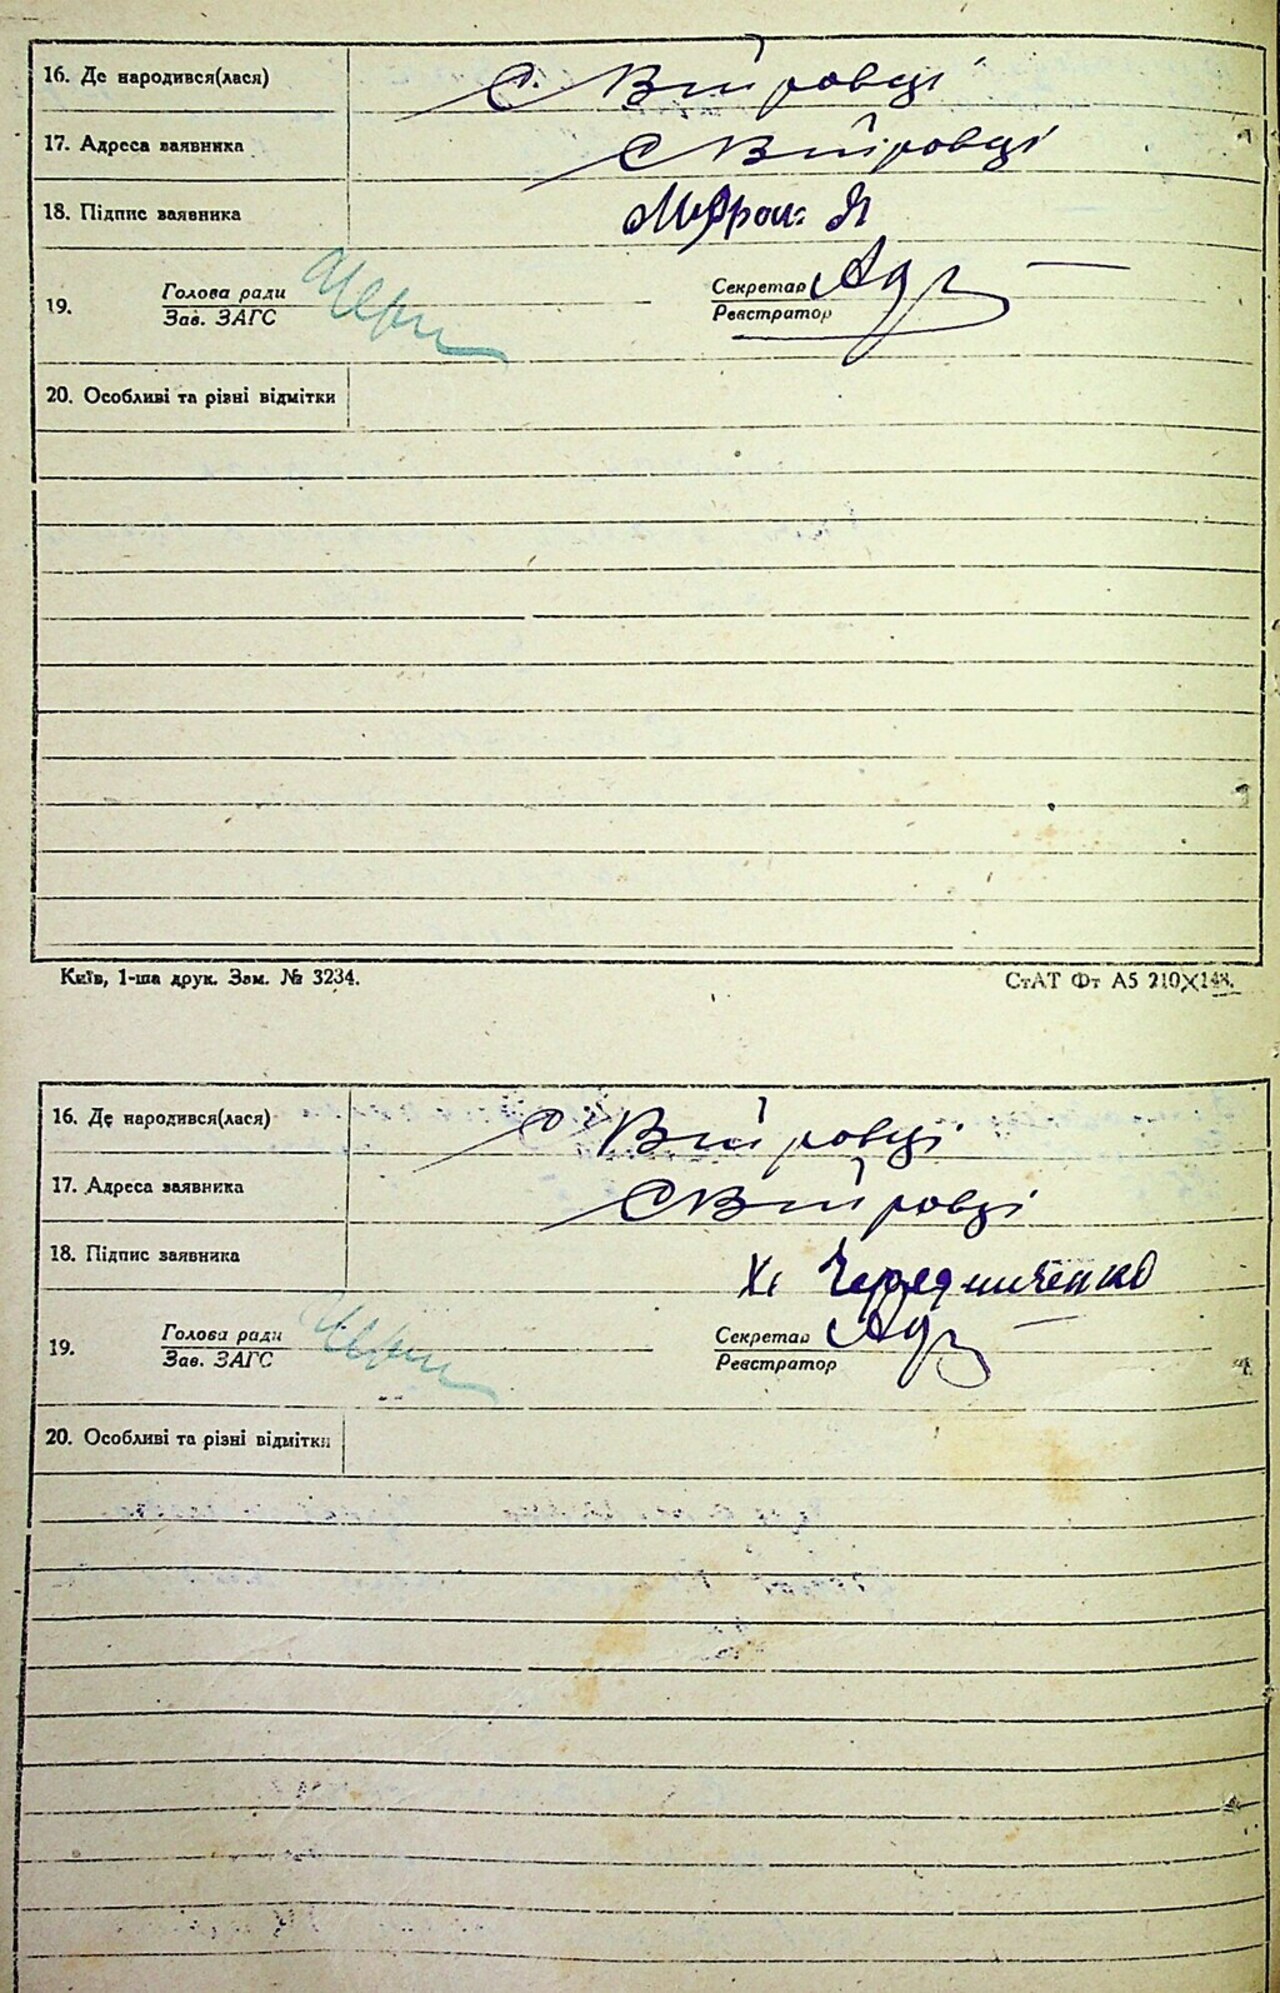 16. Де народився(лася) с. Війровці
17. Адреса заявника с Війровці
18. Підпис заявника
19. Голова ради Секретар
Зав. ЗАГС Реєстратор
20. Особливі та різні відмітки
Київ, 1-ша друк. Зам. № 3234. СтАТ Фт А5 210×148.
16. Де народився(лася) с Війровці
17. Адреса заявника с Війровці
18. Підпис заявника Чередниченко
19. Голова ради Секретар
Зав. ЗАГС Реєстратор
20. Особливі та різні відмітки